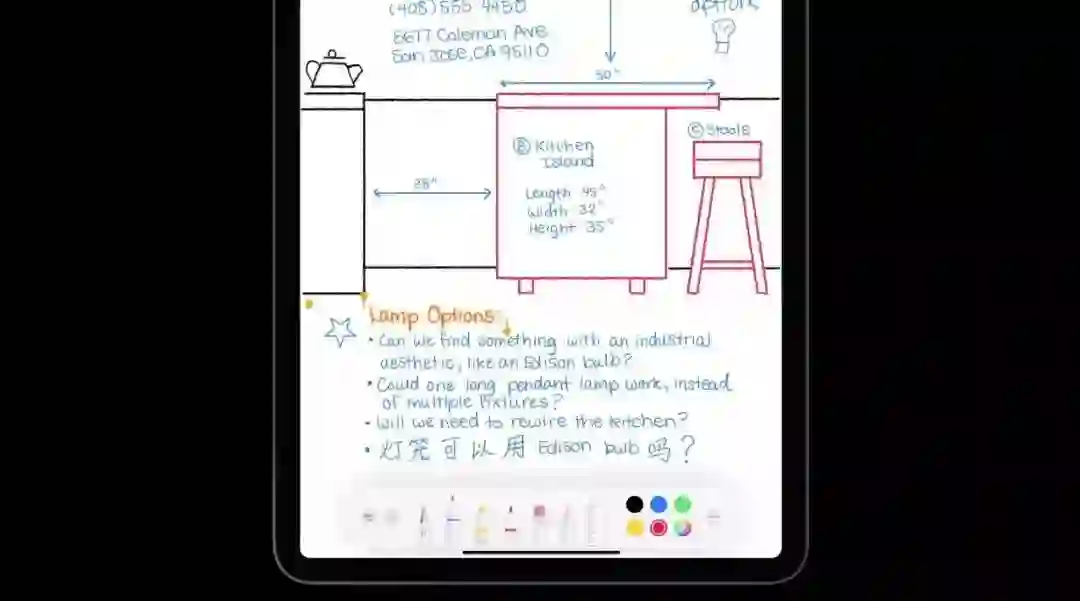 (408) 555 4450
6677 Coleman Ave
San Jose, CA 95110
options
50"
Ⓒ Stools
Ⓑ Kitchen
Island
28"
Length 45"
Width 32"
Height 35"
Lamp Options:
• Can we find something with an industrial
aesthetic, like an Edison bulb?
• Could one long pendant lamp work, instead
of multiple fixtures?
• Will we need to rewire the kitchen?
• 灯笼可以用 Edison bulb 吗?